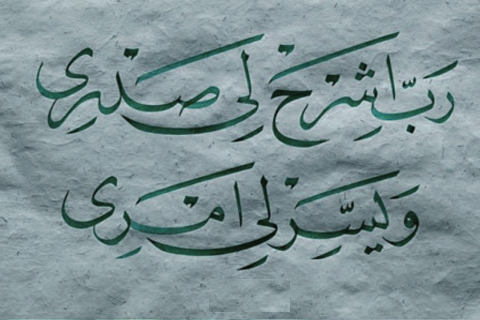 رَبِّ اشْرَحْ لِی صَدْرِی
وَ یَسِّرْ لِی اَمْرِی